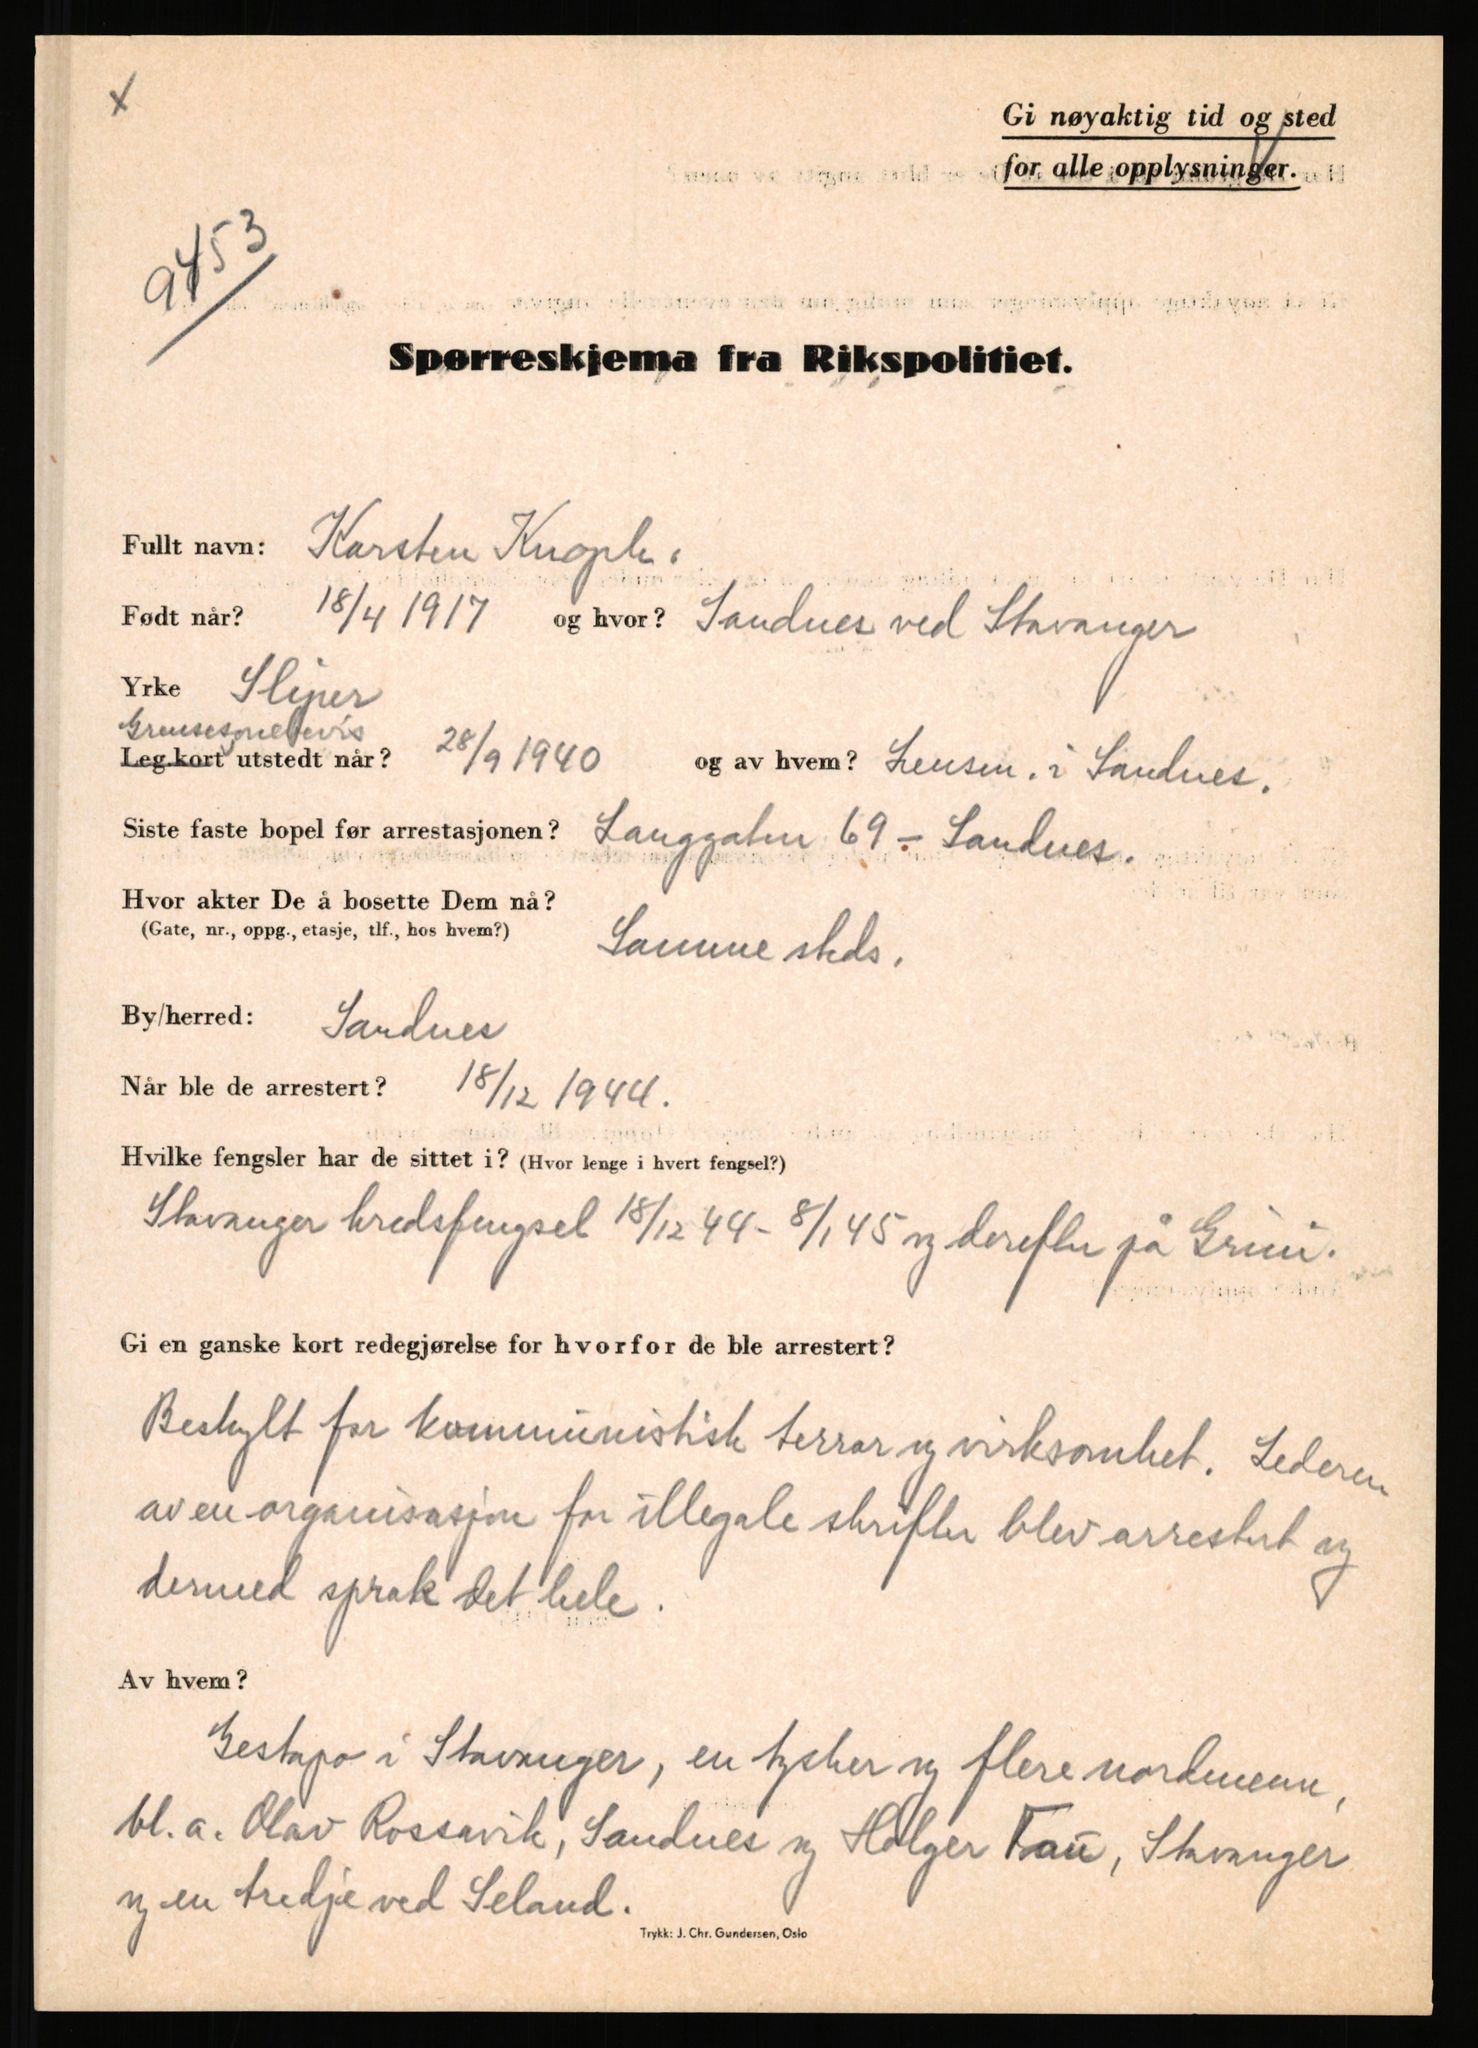 x
Gi nøyaktig tid og sted
for alle opplysninger.
9453
Spørreskjema fra Rikspolitiet.
Fullt navn: Karsten
Født når? 18/4 1917 og hvor? Sandnes ved Stavanger
Yrke Sliper
Grensesonebevis
Leg.kort utstedt når? 28/9 1940 og av hvem? Lensm. i Sandnes.
Siste faste bopel før arrestasjonen? Langgaten 69 - Sandnes.
Hvor akter De å bosette Dem nå?
(Gate, nr., oppg., etasje, tlf., hos hvem?) Samme steds.
By/herred: Sandnes
Når ble de arrestert? 18/12 1944.
Hvilke fengsler har de sittet i? (Hvor lenge i hvert fengsel?)
Stavanger kredsfengsel 18/12 44 - 8/1 45 og derefter på Grini.
Gi en ganske kort redegjørelse for hvorfor de ble arrestert?
Beskylt for kommunistisk terror og virksomhet. Lederen
av en organisasjon for illegale skrifter blev arrestert og
dermed sprak det hele.
Av hvem?
Gestapo i Stavanger, en tysker og flere nordmenn,
bl. a. Olav Rossavik, Sandnes og Holger Tou, Stavanger
og en tredje ved Seland.
Trykk: J. Chr. Gundersen, Oslo